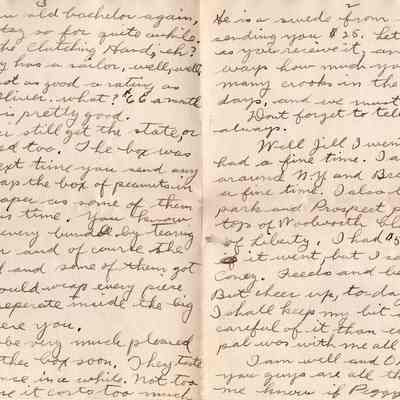 3
an old bachelor again,
stay so for quite awhile.
the Clutching Hand, eh?
y has a sailor, well, well,
not as good a rating as
Oliver. what? $66 a month
is pretty good.
u still get the state, or
ed too. The box was
ext time you send any
ap the box of peanuts in
aper as some of them
is time. You know
every bundle by tearing
r and of course the
d and some of them got
ould wrap every piece
seperate inside the big
ere you.
be very much pleased
ther box soon. They taste
nse in a while. Not too
se it costs too much
2
He is a swede from
sending you $25. Let
as you receive it, an
ways how much you
many crooks in the
days, and we must
Dont forget to tel
always.
Well Jill I wen
had a fine time. I a
around N.Y. and
a fine time. I also
park and Prospect p
top of Woolworth bl
of Liberty. I had $5
of it went, but I sa
Coney. Feeds and be
But cheer up, to-day
I shall keep my bit
careful of it than e
pal was with me all
I am well and
you guys are all th
me know if Peggy